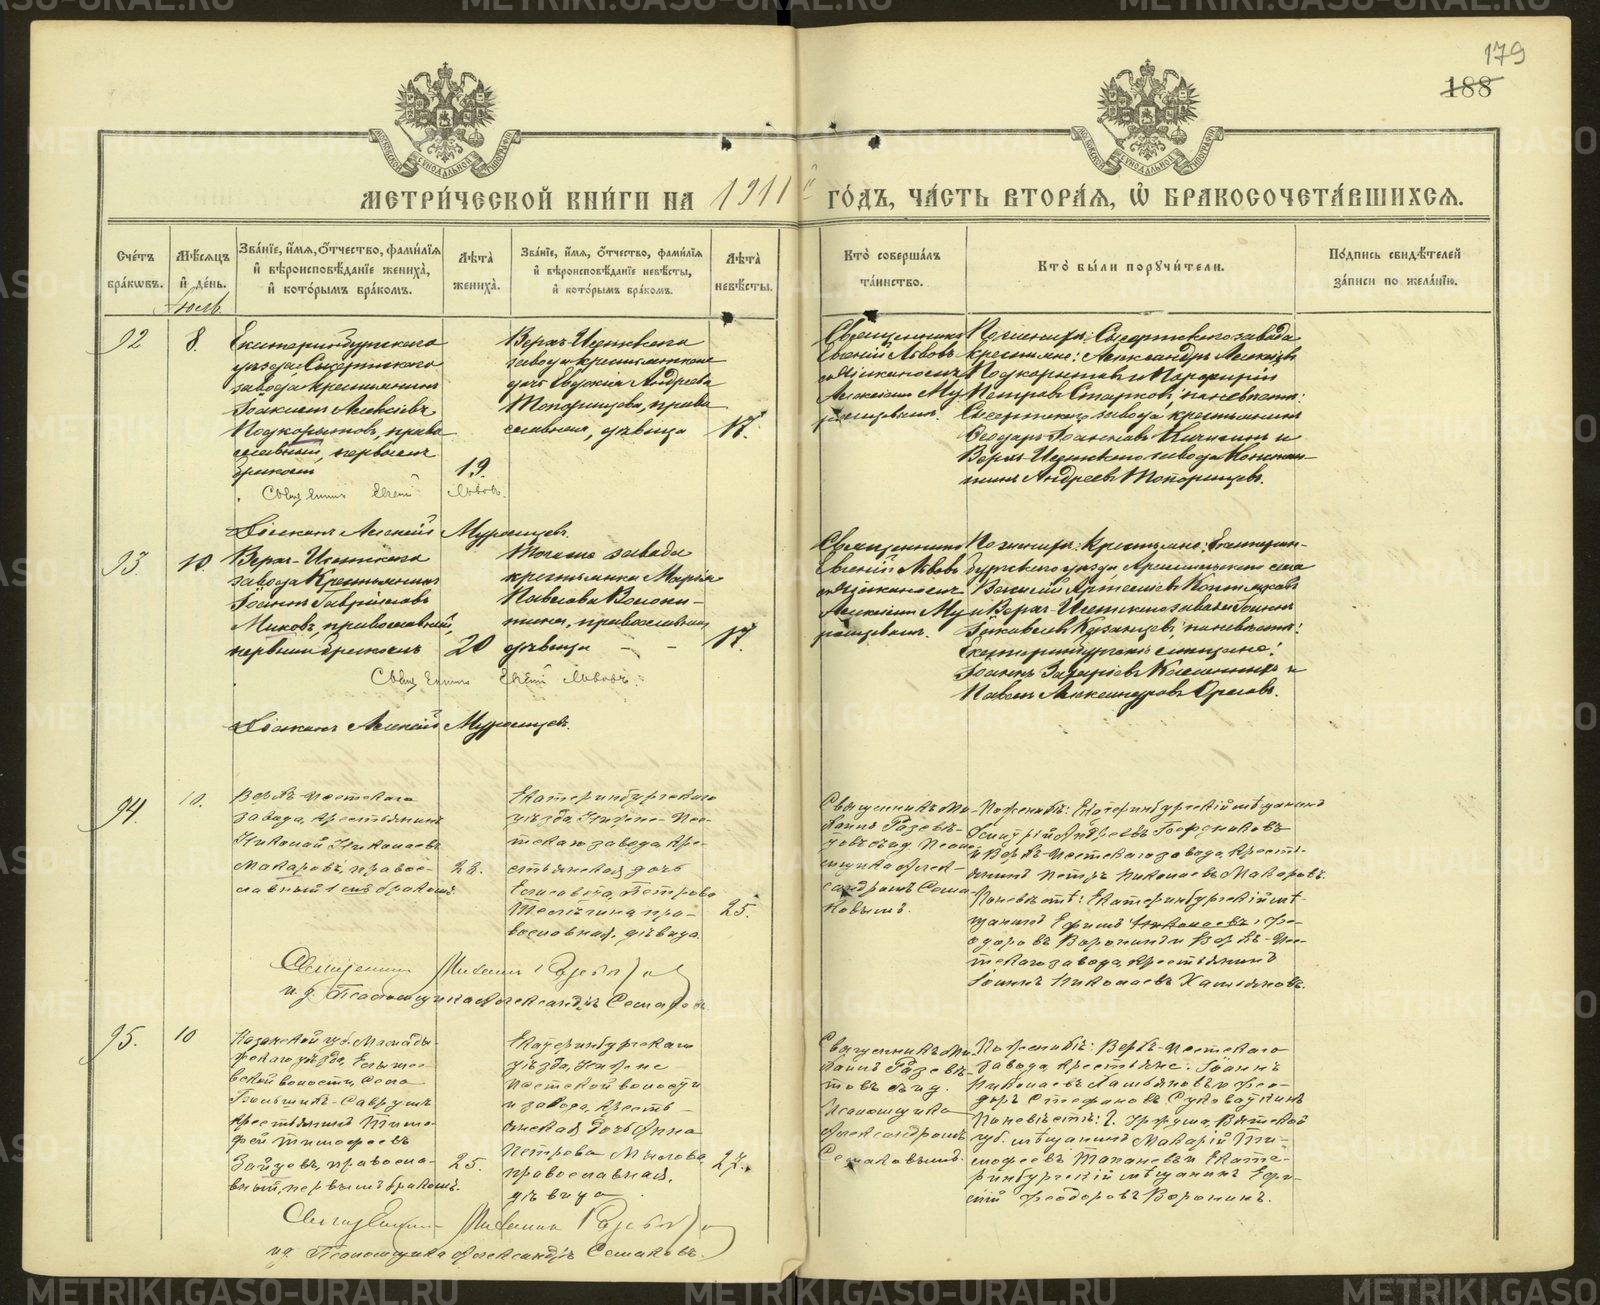 179
188
МЕТРИ́ЧЕСКОЙ КНИ́ГИ НА 1911й ГО́ДЪ, ЧА́СТЬ ВТОРА́Я, Ѽ БРАКОСОЧЕТА́ВШИХСЯ.
Сче́тъ бра́кѡвъ.
Мѣ́сяцъ и҆ де́нь.
Зва́нїе, и҆́мя, ѻ҆́тчество, фами́лїя и҆ вѣроисповѣ́данїе жениха̀, и҆ кото́рымъ бра́комъ.
Лѣта̀ жениха̀.
Зва́нїе, и҆́мя, ѻ҆́тчество, фами́лїя и҆ вѣроисповѣ́данїе невѣ́сты, и҆ кото́рымъ бра́комъ.
Лѣта̀ невѣ́сты.
Кто̀ соверша́лъ та́инство.
Кто̀ бы́ли порꙋчи́тели.
По́дпись свидѣ́телей за́писи по жела́нїю.
Іюль.
92
8.
Екатеринбургскаго
уѣзда Сысертскаго
завода крестьянинъ
Іоакимъ Алексіевъ
Подкорытовъ, право
славный, первымъ
бракомъ
19.
Верхъ-Исетскаго
завода крестьянская
дочь Евдокія Андреева
Топорищева, право
славная, дѣвица
17.
Священникъ
Евгеній Львовъ
съ діакономъ
Алексіемъ Му
ромцевымъ.
По женихѣ: Сысертскаго завода
крестьяне: Александръ Алексіевъ
Подкорытовъ и Порфирій
Петровъ Старковъ; по невѣстѣ:
Сысертскаго завода крестьянинъ
Ѳеодоръ Іоанновъ Кичигинъ и
Верхъ-Исетскаго завода Констан-
тинъ Андреевъ Топорищевъ.
Священникъ Евгеній Львовъ.
Діаконъ Алексій Муромцевъ.
93.
10.
Верхъ-Исетскаго
завода крестьянинъ
Іоаннъ Гавріиловъ
Миковъ, православный,
первымъ бракомъ
20
Того же завода
крестьянка Марія
Павлова
православная
дѣвица - -
17.
Священникъ
Евгеній Львовъ
съ діакономъ
Алексіемъ Му
ромцевымъ.
По женихѣ: крестьяне: Екатерин-
бургскаго уѣзда села
Василій
и Верхъ-Исетскаго завода Іоаннъ
Іаковлевъ Казанцевъ; по невѣстѣ:
Екатеринбургскіе мѣщане:
Іоаннъ Захаріевъ и
Павелъ Александровъ Орловъ.
Священникъ Евгеній Львовъ.
Діаконъ Алексій Муромцевъ.
94.
10.
Верхъ-Исетскаго
завода, крестьянинъ
Николай Николаевъ
Макаровъ, правос-
лавный 1мъ бракомъ.
22.
Екатеринбургскаго
уѣзда, Нижне-Исе-
тскаго завода, кре-
стьянская дочь
Елисавета, Петрова
пра-
вославная, дѣвица.
25.
Священникъ Ми-
хаилъ
съ и.д. Псалом-
щика Алек-
сандромъ Сема-
ковымъ.
По женихѣ: Екатеринбургскій мѣщанинъ
Димитрій Андреевъ
и Верхъ-Исетскаго завода, кресть-
янинъ Петръ Николаевъ Макаровъ.
По невѣстѣ: Екатеринбургскій мѣ-
щанинъ Ефимъ Николаевъ Ѳе-
одоровъ Воронинъ и Верхъ-Исе-
тскаго завода, крестьянинъ
Іоаннъ Николаевъ Халияновъ.
Священникъ Михаилъ
и.д. Псаломщика Александръ Семаковъ.
95.
10
Казанской губ. Мамады-
шскаго уѣзда,
вской волости, села
крестьянинъ Тимо-
фей Тимофеевъ
Зайцевъ, правосла-
вный, первымъ бракомъ.
25.
Екатеринбургскаго
уѣзда, Нижне-
Исетской волости
и завода, кресть-
янская дочь Анна
Петрова Мылова,
православная,
дѣвица
22.
Священникъ Ми-
хаилъ
съ и.д.
Псаломщика
Александромъ
Семаковымъ.
По женихѣ: Верхъ-Исетскаго
завода, крестьяне: Іоаннъ
Николаевъ Халияновъ и Ѳео-
доръ Стефановъ
По невѣстѣ: г. Уржума, Вятской
губ. мѣщанинъ Макарій Ти-
моѳеевъ и Екате-
ринбургскій мѣщанинъ
Ѳеодоровъ Воронинъ.
Священникъ Михаилъ
и.д. Псаломщика Александръ Семаковъ.
METRIKI.GASO-URAL.RU